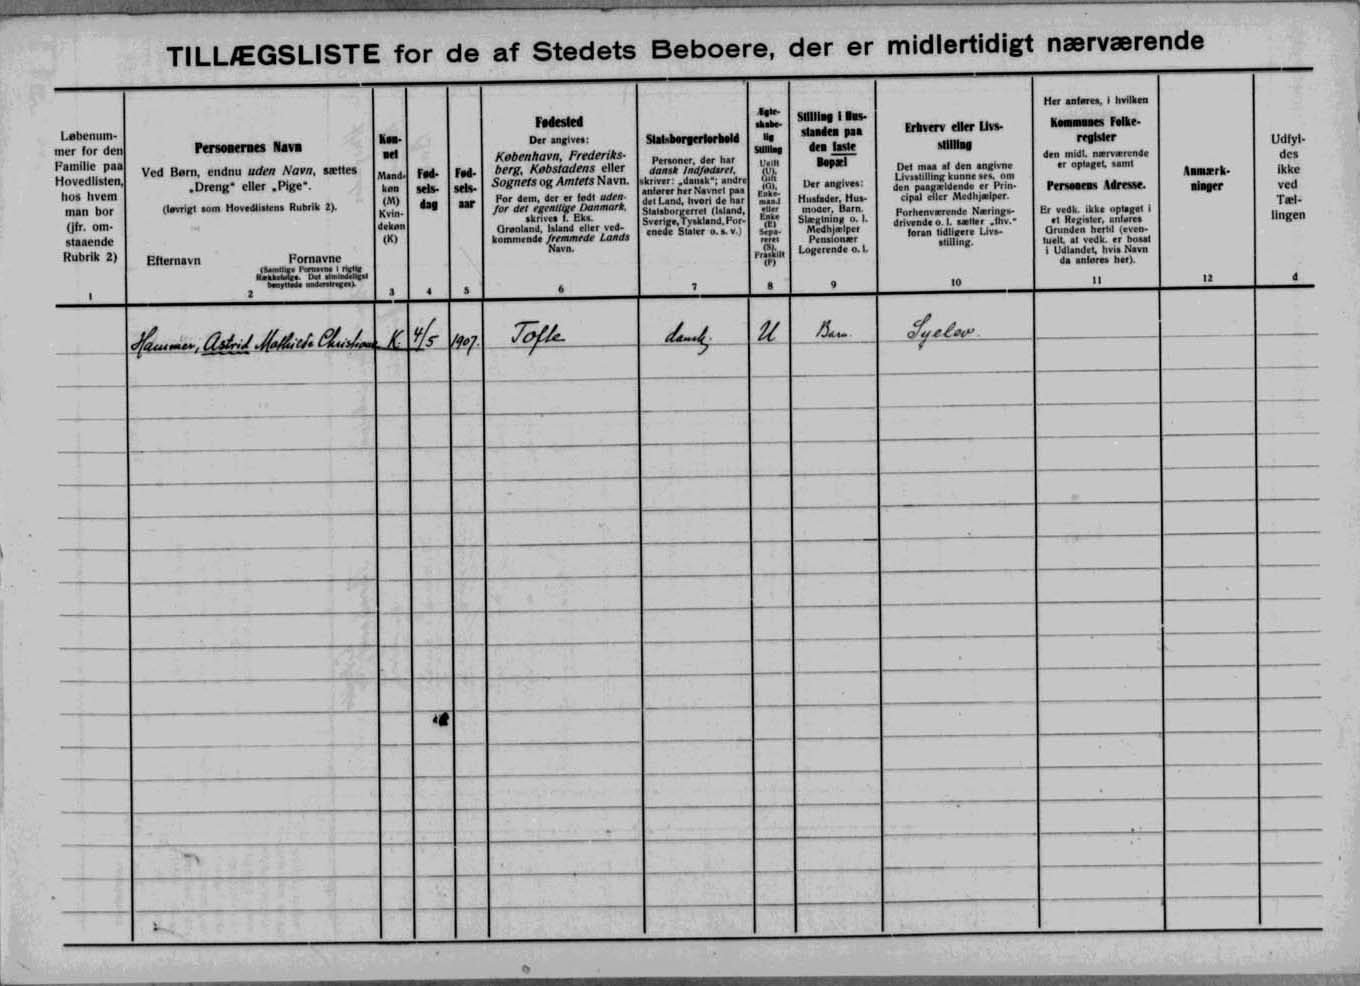 TILLÆGSLISTE for de af Stedets Beboere, der er midlertidigt nærværende
Løbenum-
mer for den
Familie paa
Hovedlisten,
hos hvem
man bor
(jfr. om-
staaende
Rubrik 2)
1
Personernes Navn
Ved Børn, endnu uden Navn, sættes
„Dreng“ eller „Pige“.
(Iøvrigt som Hovedlistens Rubrik 2).
Efternavn
Fornavne
(Samtlige Fornavne i rigtig
Rækkefølge. Det almindeligst
benyttede understreges).
2
Køn-
net
Mand-
køn
(M)
Kvin-
dekøn
(K)
3
Fød-
sels-
dag
4
Fød-
sels-
aar
5
Fødested
Der angives:
København, Frederiks-
berg, Købstadens eller
Sognets og Amtets Navn.
For dem, der er født uden-
for det egentlige Danmark,
skrives f. Eks.
Grønland, Island eller ved-
kommende fremmede Lands
Navn.
6
Statsborgerforhold
Personer, der har
dansk Indfødsret,
skriver: „dansk“; andre
anfører her Navnet paa
det Land, hvori de har
Statsborgerret (Island,
Sverige, Tyskland, For-
enede Stater o. s. v.)
7
Ægte-
skabe-
lig
Stilling
Ugift
(U),
Gift
(G),
Enke-
mand
eller
Enke
(E)
Sepa-
reret
(S),
Fraskilt
(F)
8
Stilling i Hus-
standen paa
den faste
Bopæl
Der angives:
Husfader, Hus-
moder, Barn,
Slægtning o. l.
Medhjælper
Pensionær
Logerende o. l.
9
Erhverv eller Livs-
stilling
Det maa af den angivne
Livsstilling kunne ses, om
den paagældende er Prin-
cipal eller Medhjælper.
Forhenværende Nærings-
drivende o. l. sætter „fhv.“
foran tidligere Livs-
stilling.
10
Her anføres, i hvilken
Kommunes Folke-
register
den midl. nærværende
er optaget, samt
Personens Adresse.
Er vedk. ikke optaget i
et Register, anføres
Grunden hertil (even-
tuelt, at vedk. er bosat
i Udlandet, hvis Navn
da anføres her).
11
Anmærk-
ninger
12
Udfyl-
des
ikke
ved
Tæl-
lingen
d
Hammer, Astrid Mathilde Christiane K. 4/5 1907. Tofte dansk. U Barn Syelev.